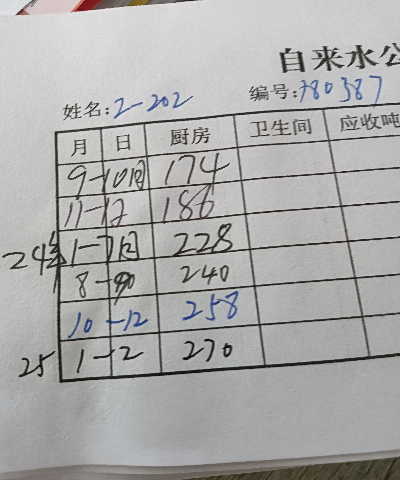 自来水公
姓名:2-202 编号:780387
月 日 厨房 卫生间 应收吨
9-10月 174
11-12 186
24年 1-7月 228
8-90 240
10-12 258
25 1-2 270